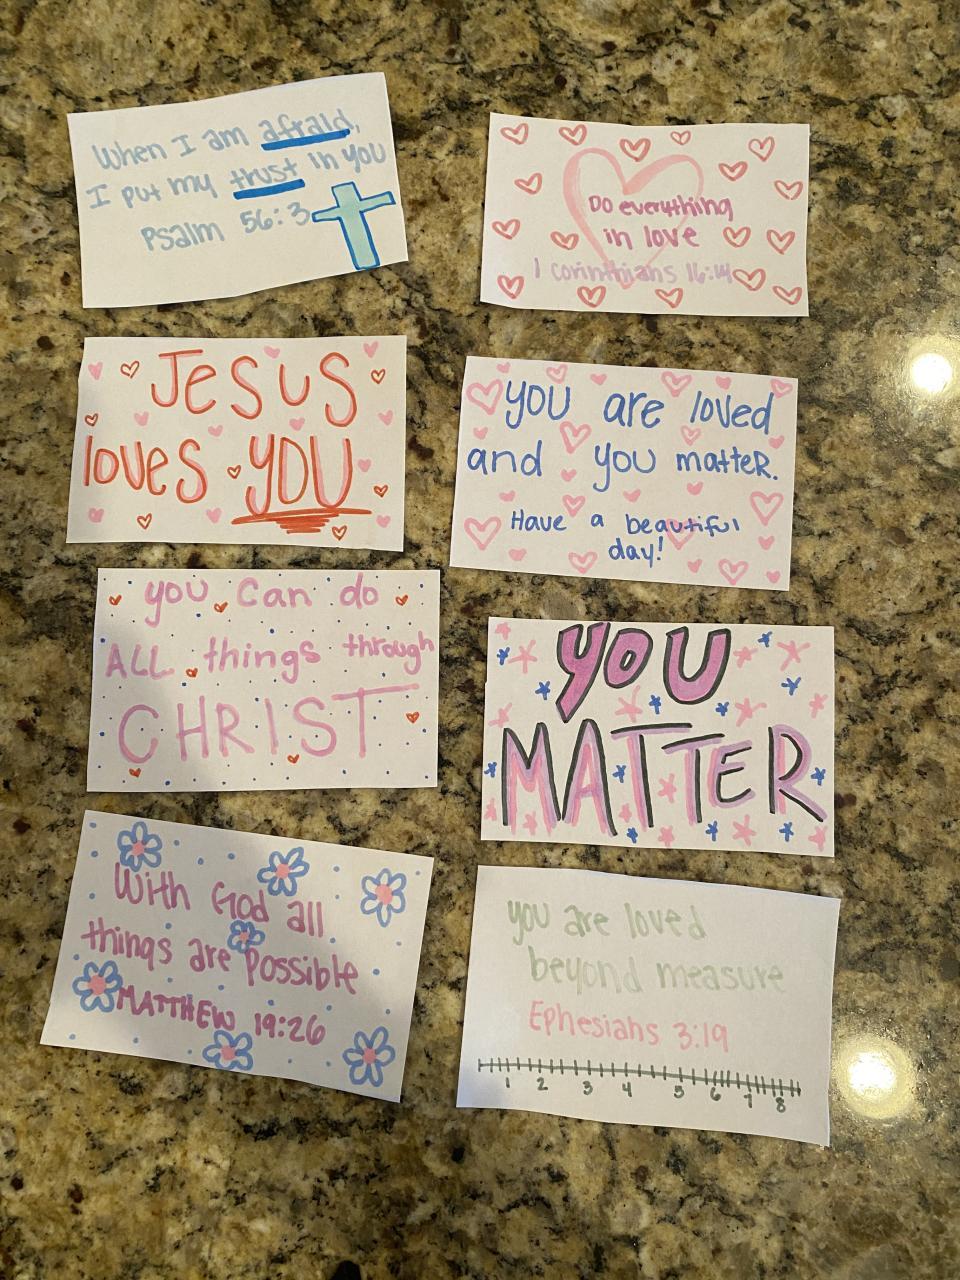 When I am afraid,
I put my trust in you
Psalm 56:3
Do everything
in love
1 corinthians 16:14
Jesus
loves YOU
you are loved
and you matter.
Have a beautiful
day!
you can do
ALL things through
CHRIST
YOU
MATTER
With God all
things are possible
MATTHEW 19:26
you are loved
beyond measure
Ephesians 3:19
1 2 3 4 5 6 7 8